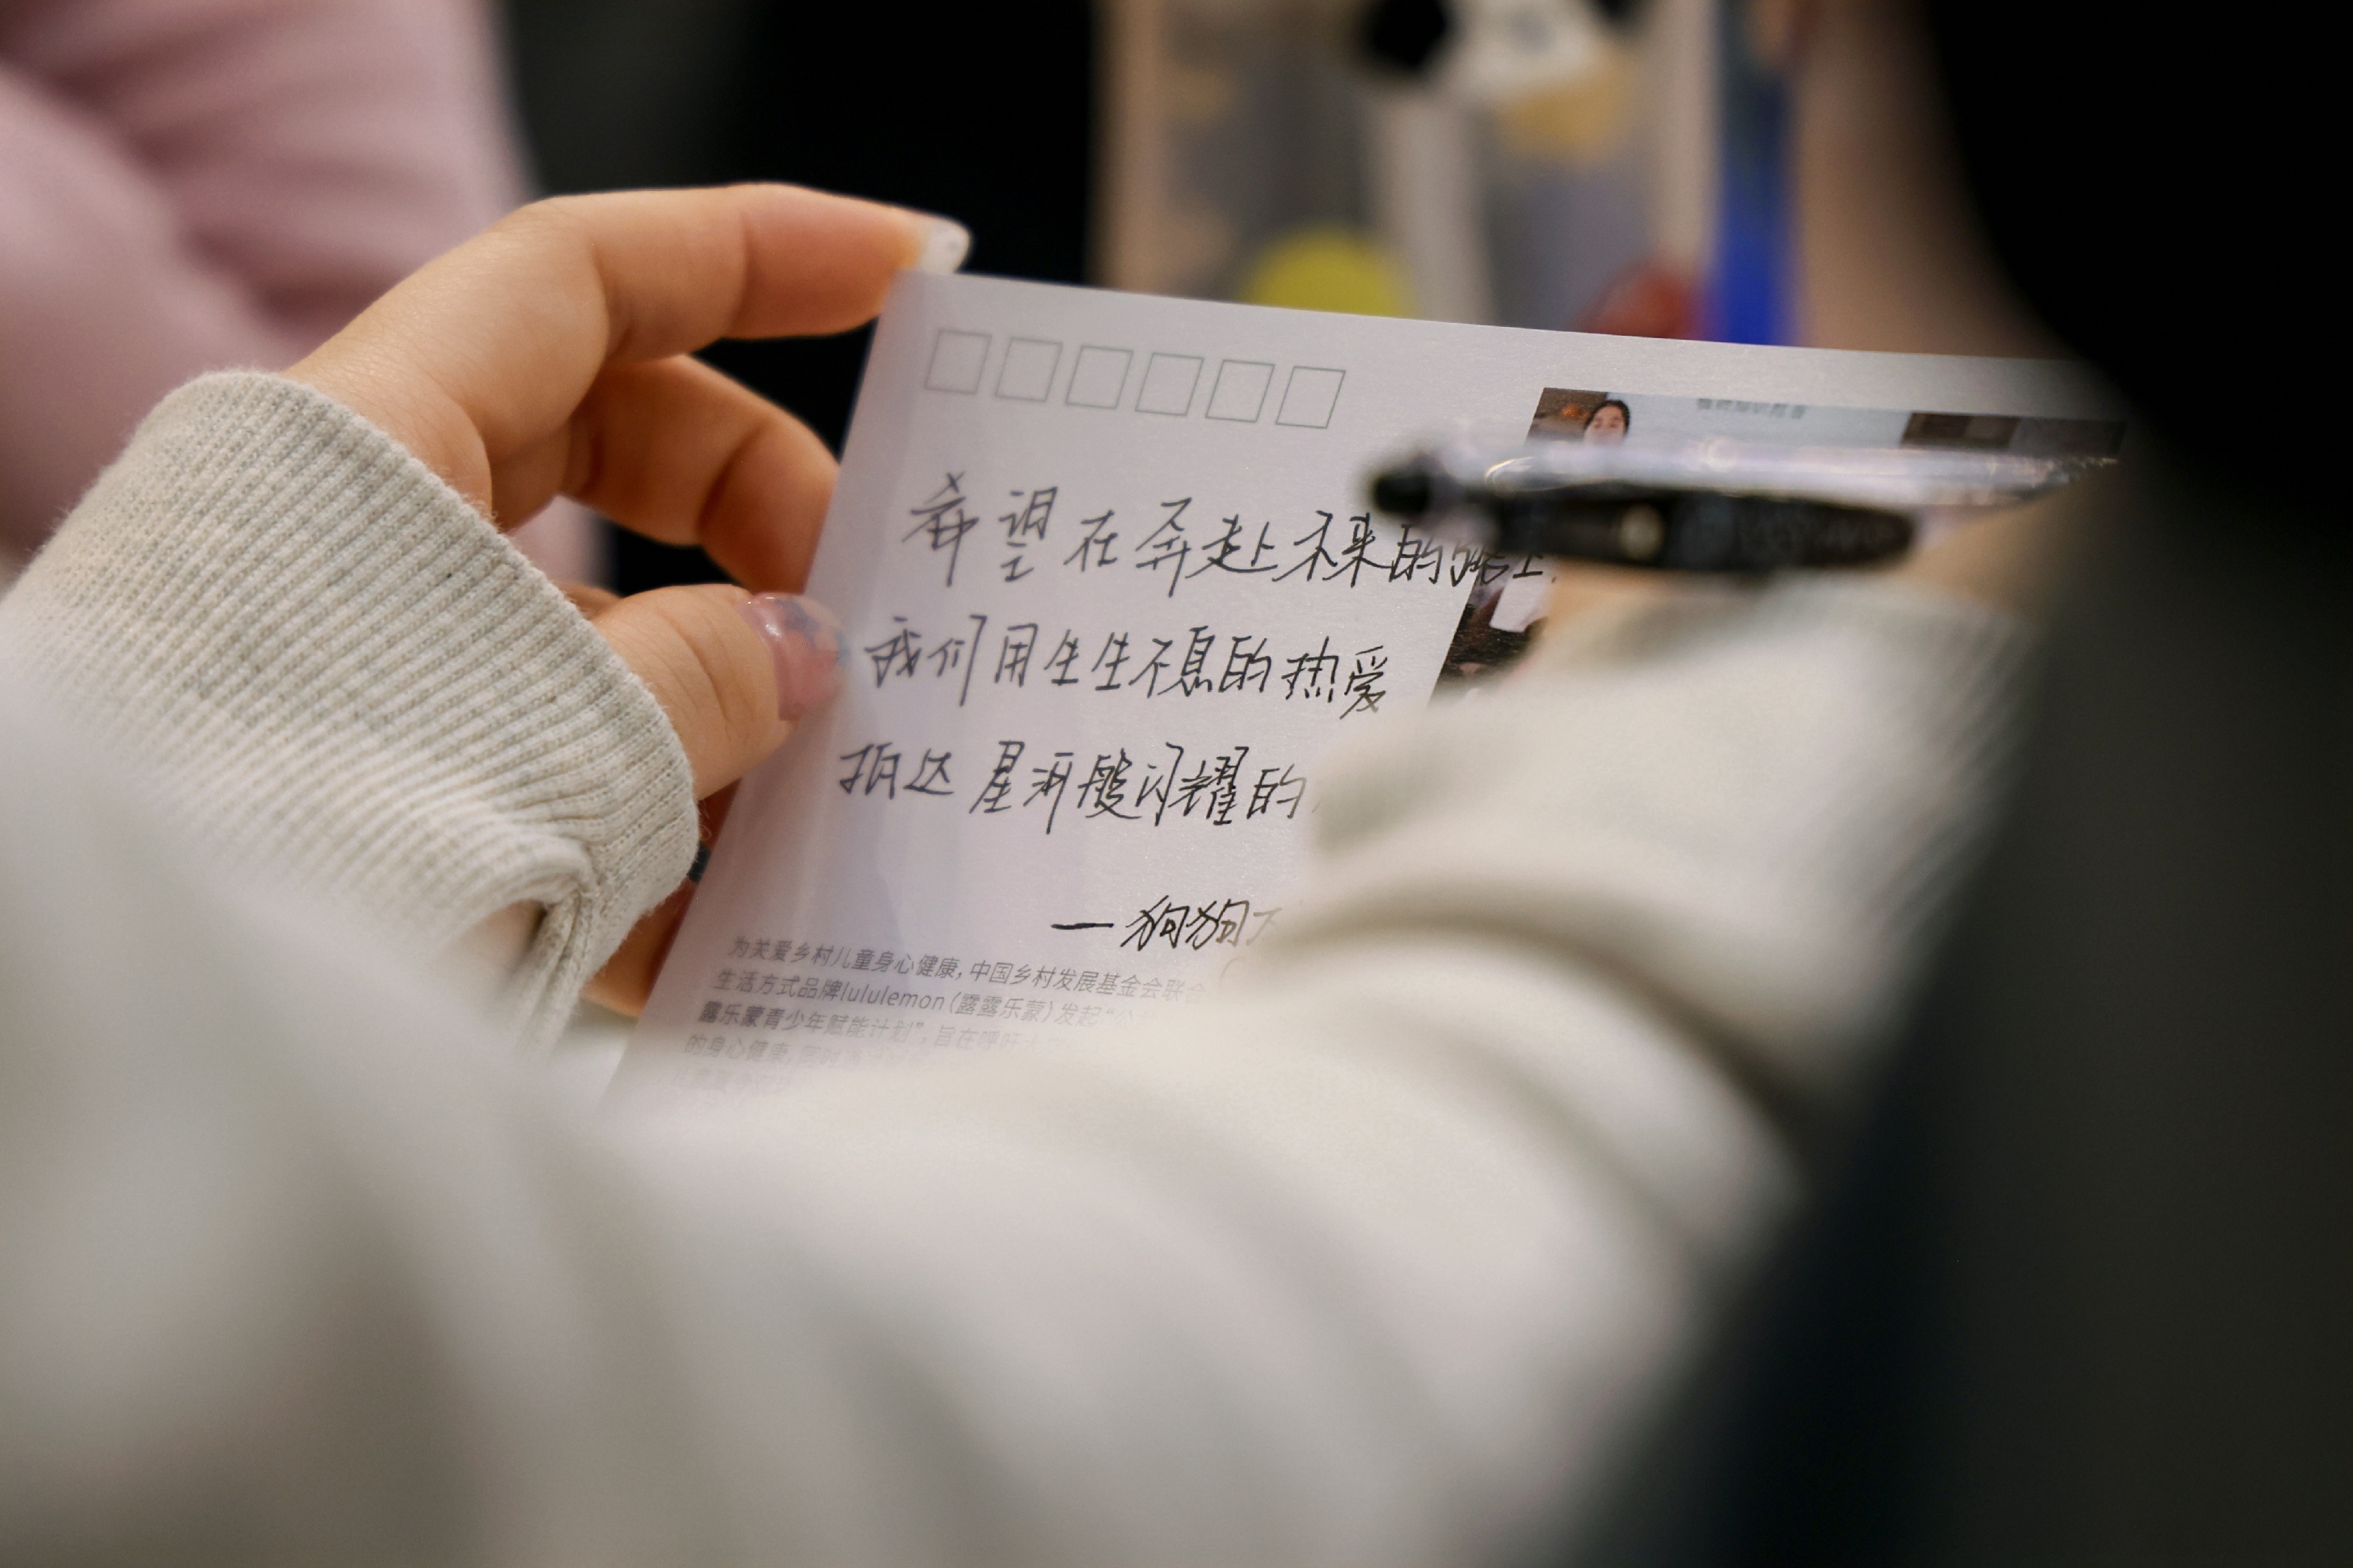 希望在奔赴未来的路上
我们用生生不息的热爱
抵达星河般闪耀的
一狗狗
为关爱乡村儿童身心健康，中国乡村发展基金会联合
生活方式品牌lululemon（露露乐蒙）发起“公
露乐蒙青少年赋能计划”，旨在呼吁
的身心健康，同时